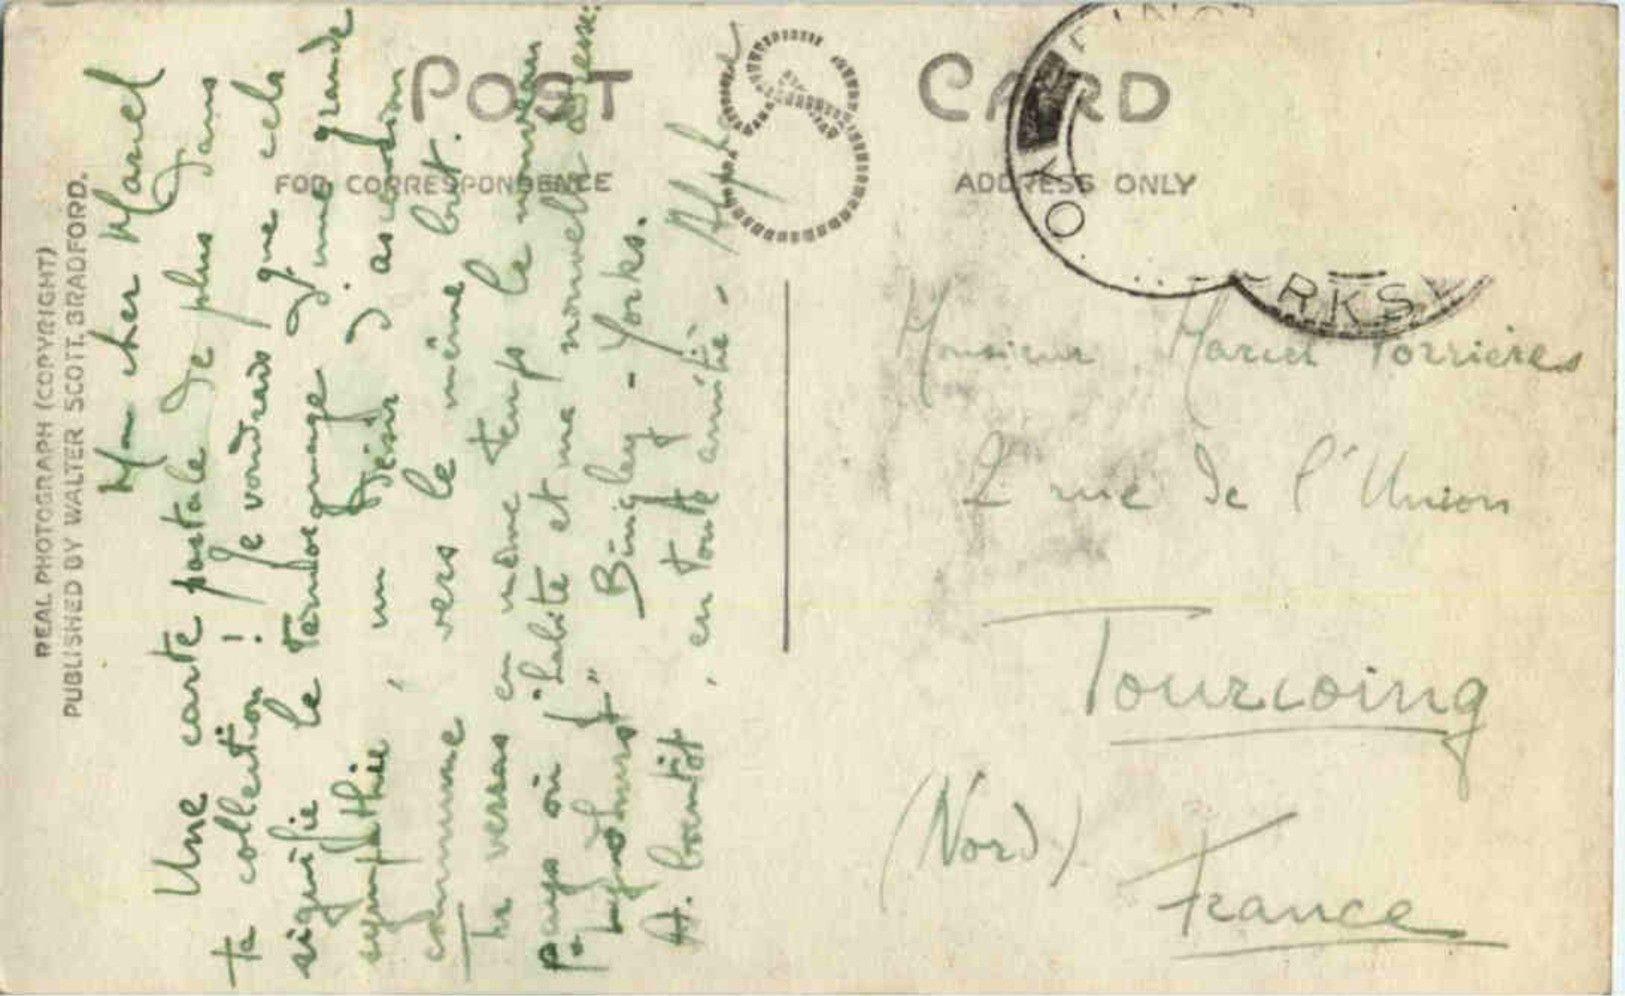 POST CARD
FOR CORRESPONDENCE
ADDRESS ONLY
REAL PHOTOGRAPH (COPYRIGHT)
PUBLISHED BY WALTER SCOTT, BRADFORD.
Mon cher Marcel
Une carte postale de plus dans
ta collection ! Je voudrais que cela
signifie le témoignage d'une grande
sympathie, un désir d'ascension
commune vers le même but.
Tu verras en même temps le nouveau
pays où j'habite et ma nouvelle adresse:
" " Bingley - Yorks.
A bientôt, en toute amitié - Alphonse
Monsieur Marcel
2 rue de l'Union
Tourcoing
(Nord)
France
RKS